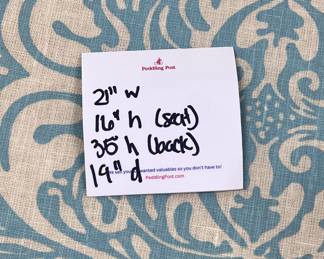 Peddling Post
21" w
16" h (seat)
35" h (back)
19" d
sell your unwanted valuables so you don't have to!
PeddlingPost.com